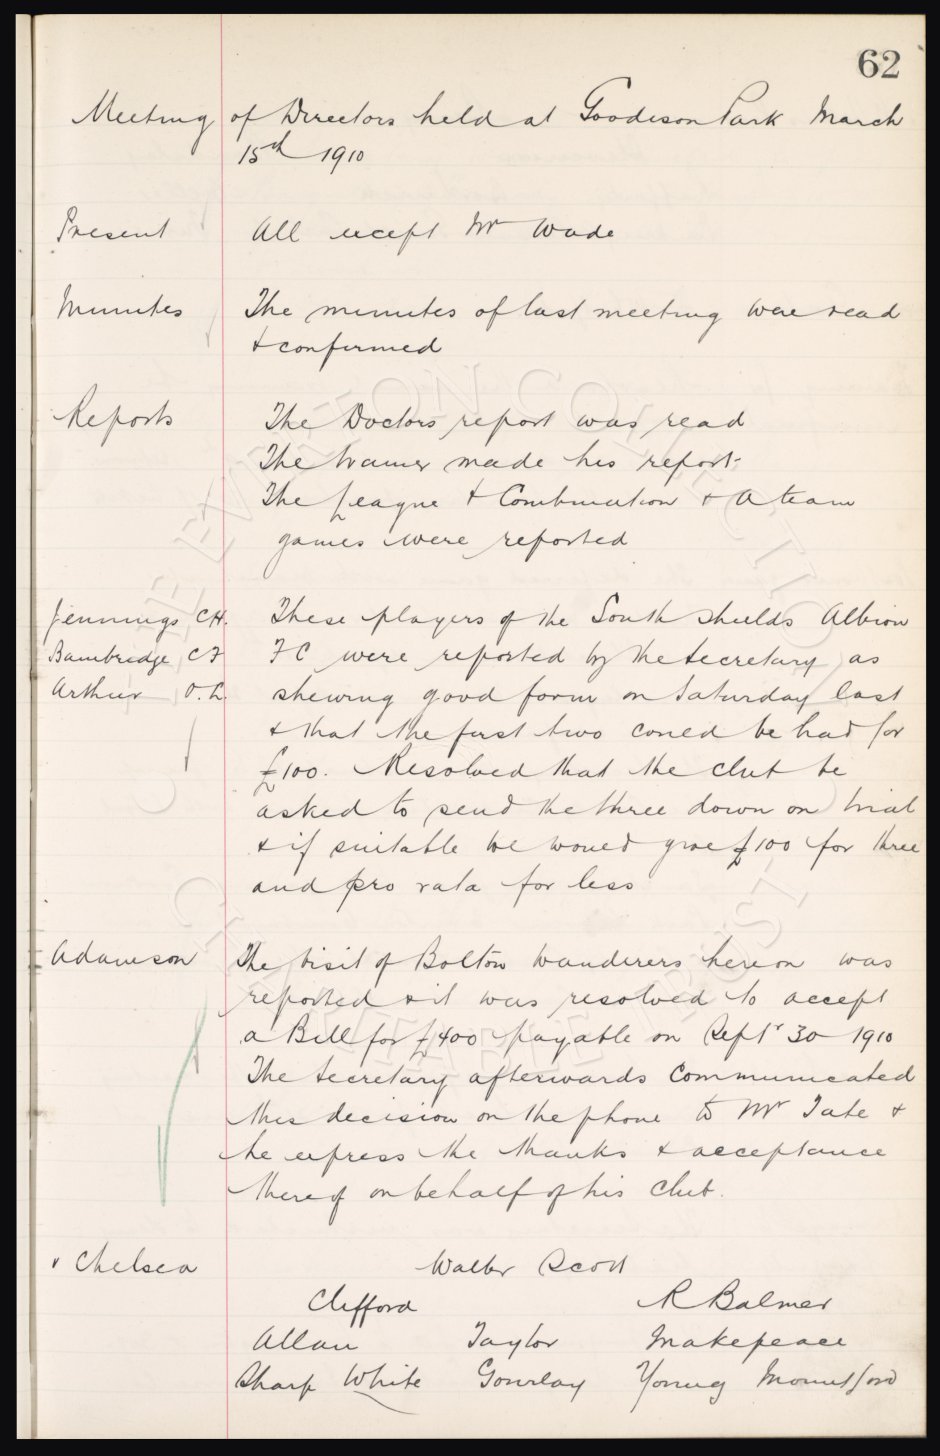 62
Meeting of Directors held at Goodison Park March
15th 1910
Present All except Mr Wade
Minutes The minutes of last meeting were read
& confirmed
Reports The Doctors report was read
The trainer made his report
The League & Combination & A team
games were reported
Jennings CH. These players of the South Shields Albion
Bambridge CF FC were reported by the Secretary as
Arthur O.L. shewing good form on Saturday last
& that the first two could be had for
£100. Resolved that the club be
asked to send the three down on trial
& if suitable we would give £100 for three
and pro rata for less
Adamson The visit of Bolton Wanderers hereon was
reported & it was resolved to accept
a Bill for £400 payable on Septr 30 1910
The Secretary afterwards communicated
this decision on the phone to Mr Tate &
he express the thanks & acceptance
thereof on behalf of his club.
v Chelsea Walter Scott
Clifford R Balmer
Allan Taylor Makepeace
Sharp White Gourlay Young Mountford